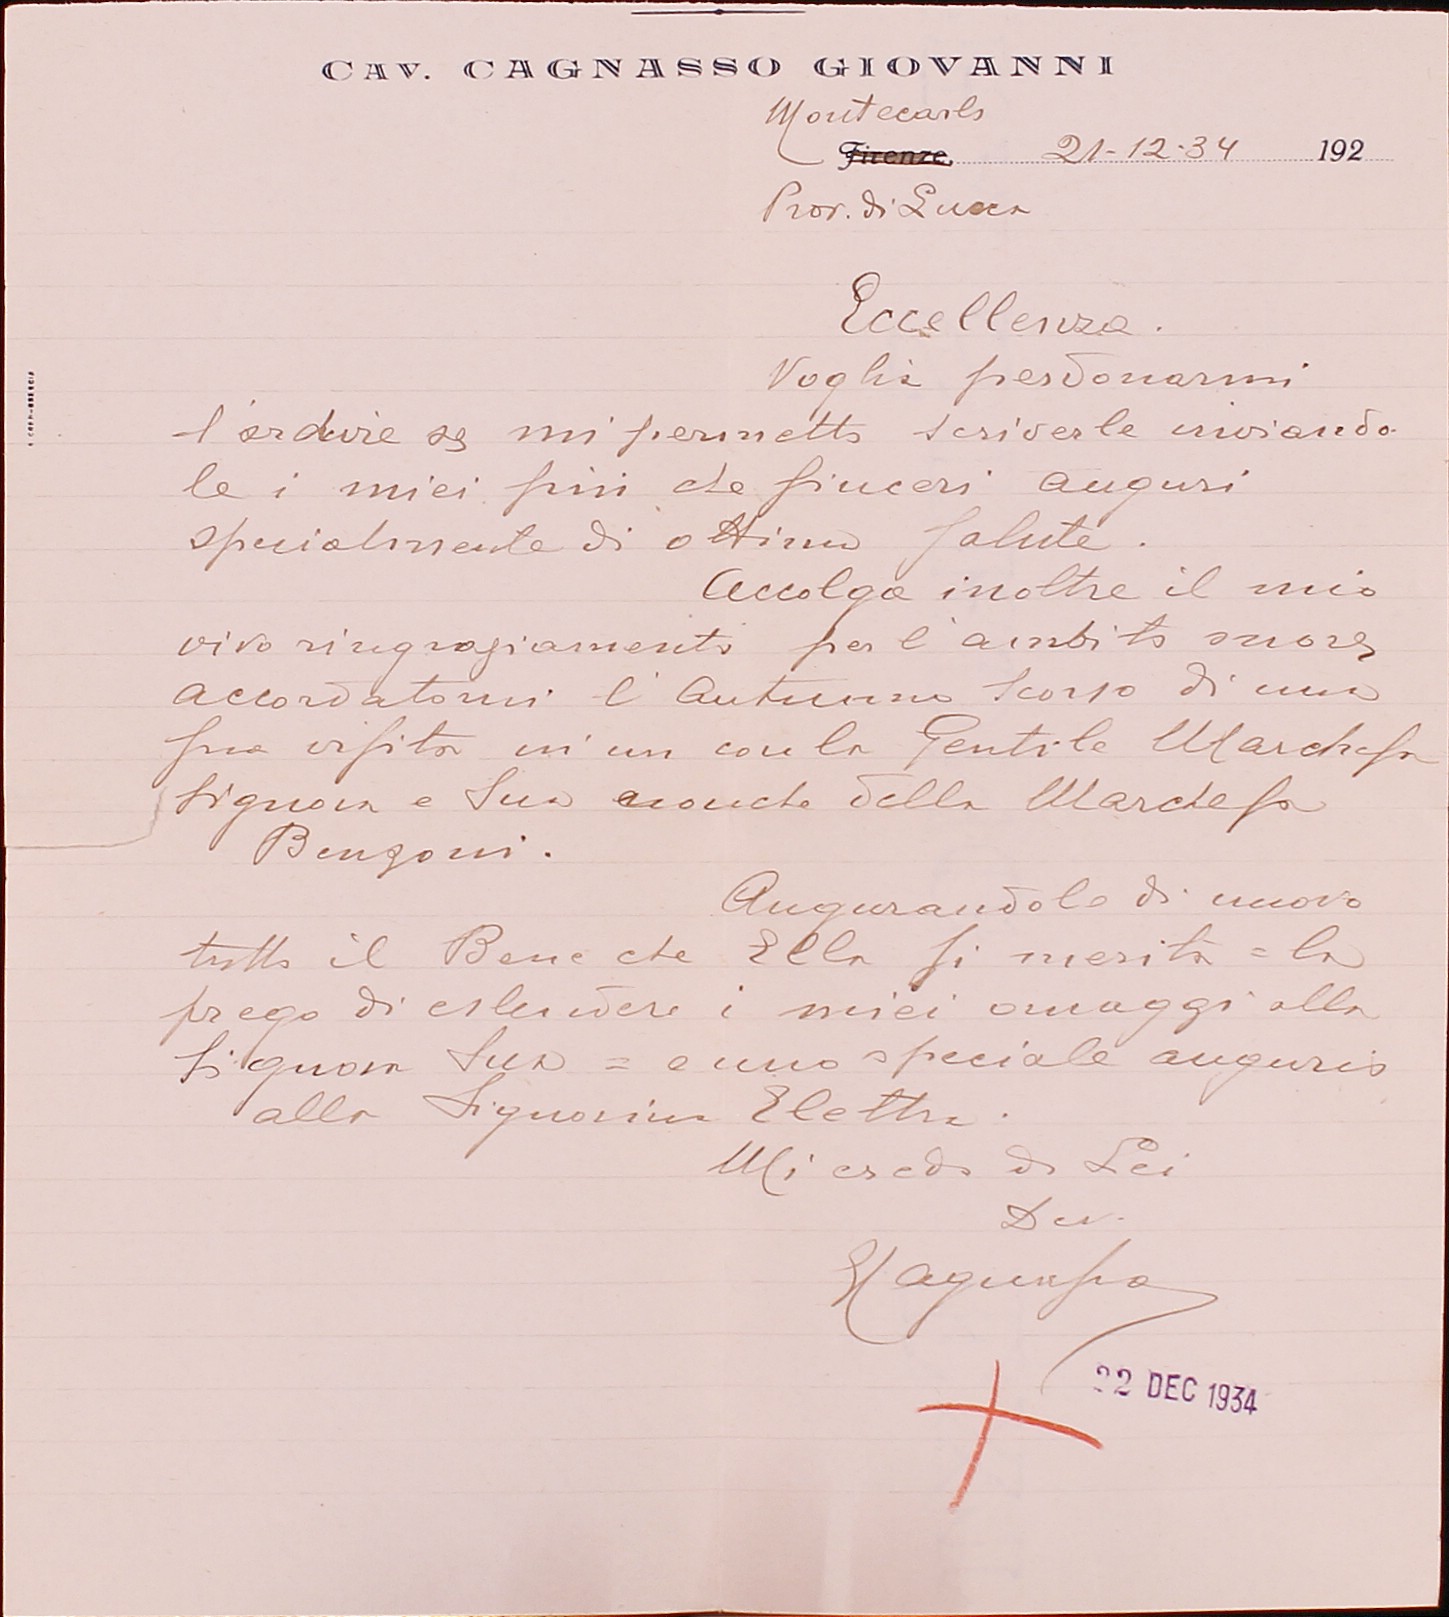 CAV. CAGNASSO GIOVANNI
Montecarlo
Firenze, 21-12-34 192
Prov. di Lucca
Eccellenza.
Voglia perdonarmi
l'ardire se mi permetto scriverle inviando
le i miei più che sinceri auguri
specialmente di ottima salute.
Accolga inoltre il mio
vivo ringraziamento per l'ambito onore
accordatomi l'Autunno scorso di una
sua visita in un con la Gentile Marchesa
Signora e Sua nonche della Marchesa
Benzoni.
Augurandole di nuovo
tutto il Bene che Ella si merita = la
prego di estendere i miei omaggi alla
Signora Sua = e uno speciale augurio
alla Signorina Elettra.
Mi credo di Lei
Dev.
GCagnasso
22 DEC 1934